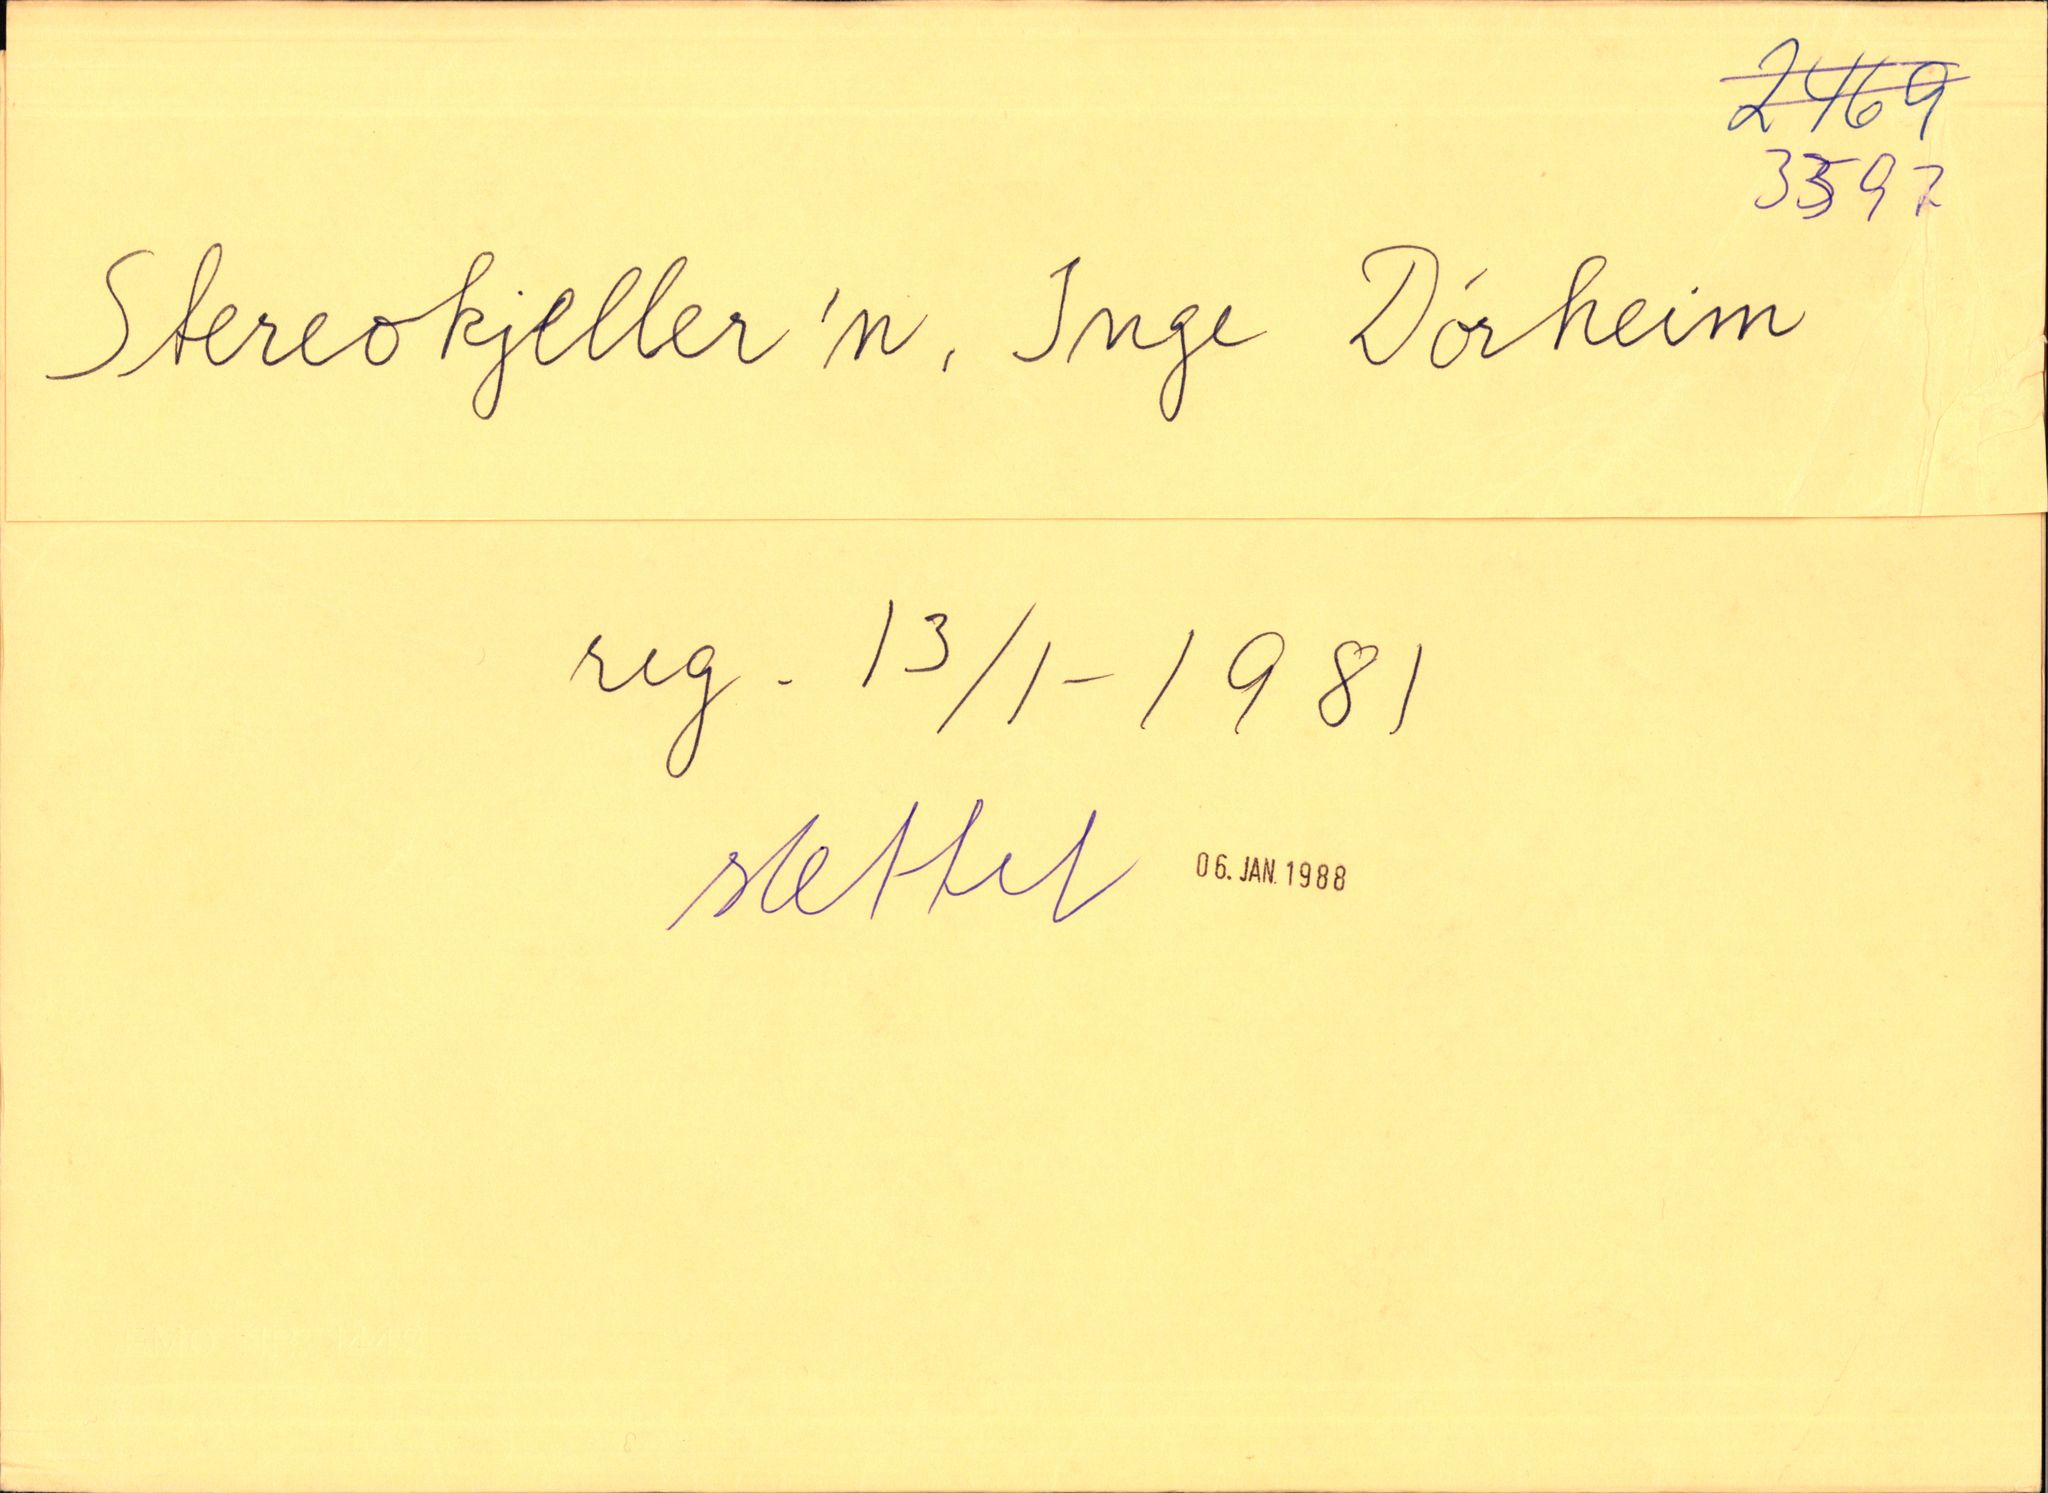 2469
3592
Stereokjeller'n, Inge Dórheim
reg. 13/1-1981
slettet 06. JAN. 1988